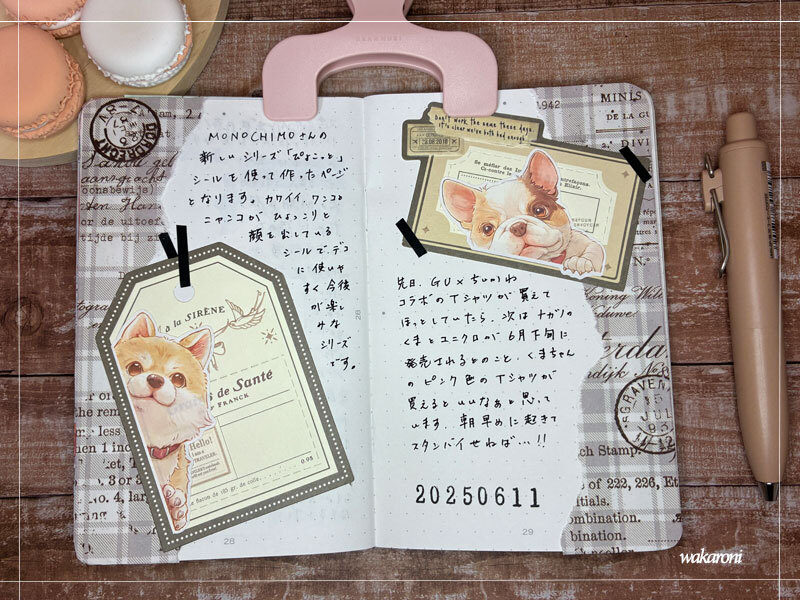 MONOCHIMOさんの
新しいシリーズ「ぴょこっと」
シールを使って作ったページ
となります。カワイイワンコや
ニャンコがひょっこりと
顔を出している
シールでデコ
に使いや
すく今後
が楽し
みな
シリーズ
です。
à la SIRÈNE
de Santé
FRANCK
Hello!
TRAVELER.
0.95
flacon de 185 gr. de colle
28
Don't work the same these days.
It's clear we've both had enough!
28.08.2018
Se méfier des
Elixir.
RETOUR
ENVOYEUR
先日、GU×ちいかわ
コラボのTシャツが買えて
ほっとしていたら、次はナガノの
くまとユニクロが6月下旬に
発売されるとのこと。くまちゃん
のピンク色のTシャツが
買えるといいなぁと思って
います。朝早めに起きて
スタンバイせねば…!!
20250611
29
1942
MINIS
DE LA GU
DIVI
'SGRAVENH
15
JUL
Stamp:
of 222, 226, Et
tials.
ombination.
bination.
DORDRECHT
or de uitoefe
tijde bij dien
the rem
less
No. 4, lar
wakaroni